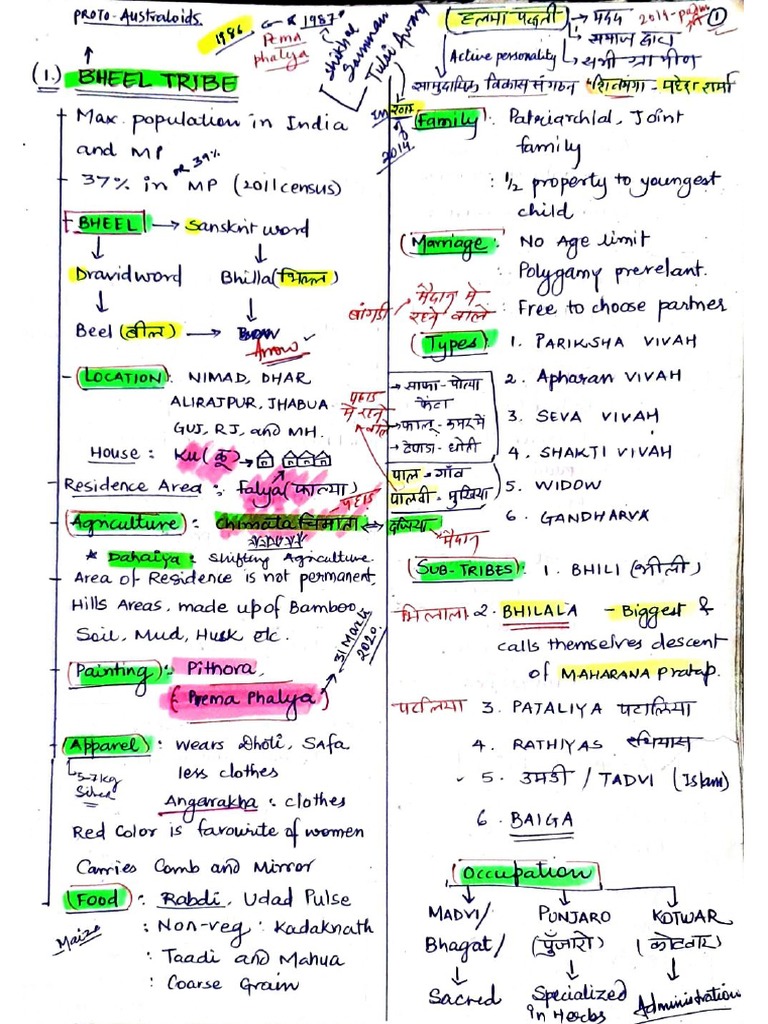 PROTO-Australoids.
1986
1987
Pema
phalya
Shikhar
Samman
Tulsi Award
(1.) BHEEL TRIBE
Max. population in India
and MP
or 39%
37% in MP (2011 census)
BHEEL → Sanskrit word
Dravid word Bhilla (भिल्ल)
Beel (बील) →
Arrow
LOCATION: NIMAD, DHAR
ALIRAJPUR, JHABUA
GUJ, RJ, and MH.
House: Ku (कू) →
Residence Area: falya (फाल्या)
पहाड़
Agriculture: Chimata चिमाता ↔ दजिया
मैदान
* Dahaiya: Shifting Agriculture.
Area of Residence is not permanent
Hills Areas, made up of Bamboo,
Soil, Mud, Husk etc.
Painting: Pithora,
(Prema Phalya) → 31 March
2020
Apparel: wears Dhoti, Safa
5-7 kg
Silver
less clothes
Angarakha: clothes
Red Color is favourite of women
Carries Comb and Mirror
Food: Rabdi, Udad Pulse
Maize
: Non-veg: Kadaknath
: Taadi and Mahua
: Coarse Grain
हलमा पद्धती → मदद 2014-padm
श्री
1
→ समाज द्वारा
Active personality
→ सभी ग्रामीण
सामुदायिक विकास संगठन "शिवगंगा - महेश शर्मा
In
of
2019
Family: Patriarchlal, Joint
family
: 1/2 property to youngest
child
Marriage: No Age limit
: Polygamy prevelant.
: Free to choose partner
बांगडी मैदान मे
रहने वाले
Types: 1. PARIKSHA VIVAH
2. Apharan VIVAH
3. SEVA VIVAH
4. SHAKTI VIVAH
5. WIDOW
6. GANDHARVA
पहाड
मे रहने
वाले
→ साफा - पोत्या
फेंटा
→ फालू - कमर में
→ धोती
पाल - गाँव
पालवी - मुखिया
SUB-TRIBES: 1. BHILI (भीली)
भिलाला 2. BHILALA - Biggest &
calls themselves descent
of MAHARANA Pratap.
पटलिया 3. PATALIYA पटालिया
4. RATHIYAS रथियास
5. उमडी / TADVI (Islam)
6. BAIGA
Occupation
MADVI/ PUNJARO KOTWAR
Bhagat/ (पुँजारो) (कोटवार)
Sacred Specialized Administration
in Herbs